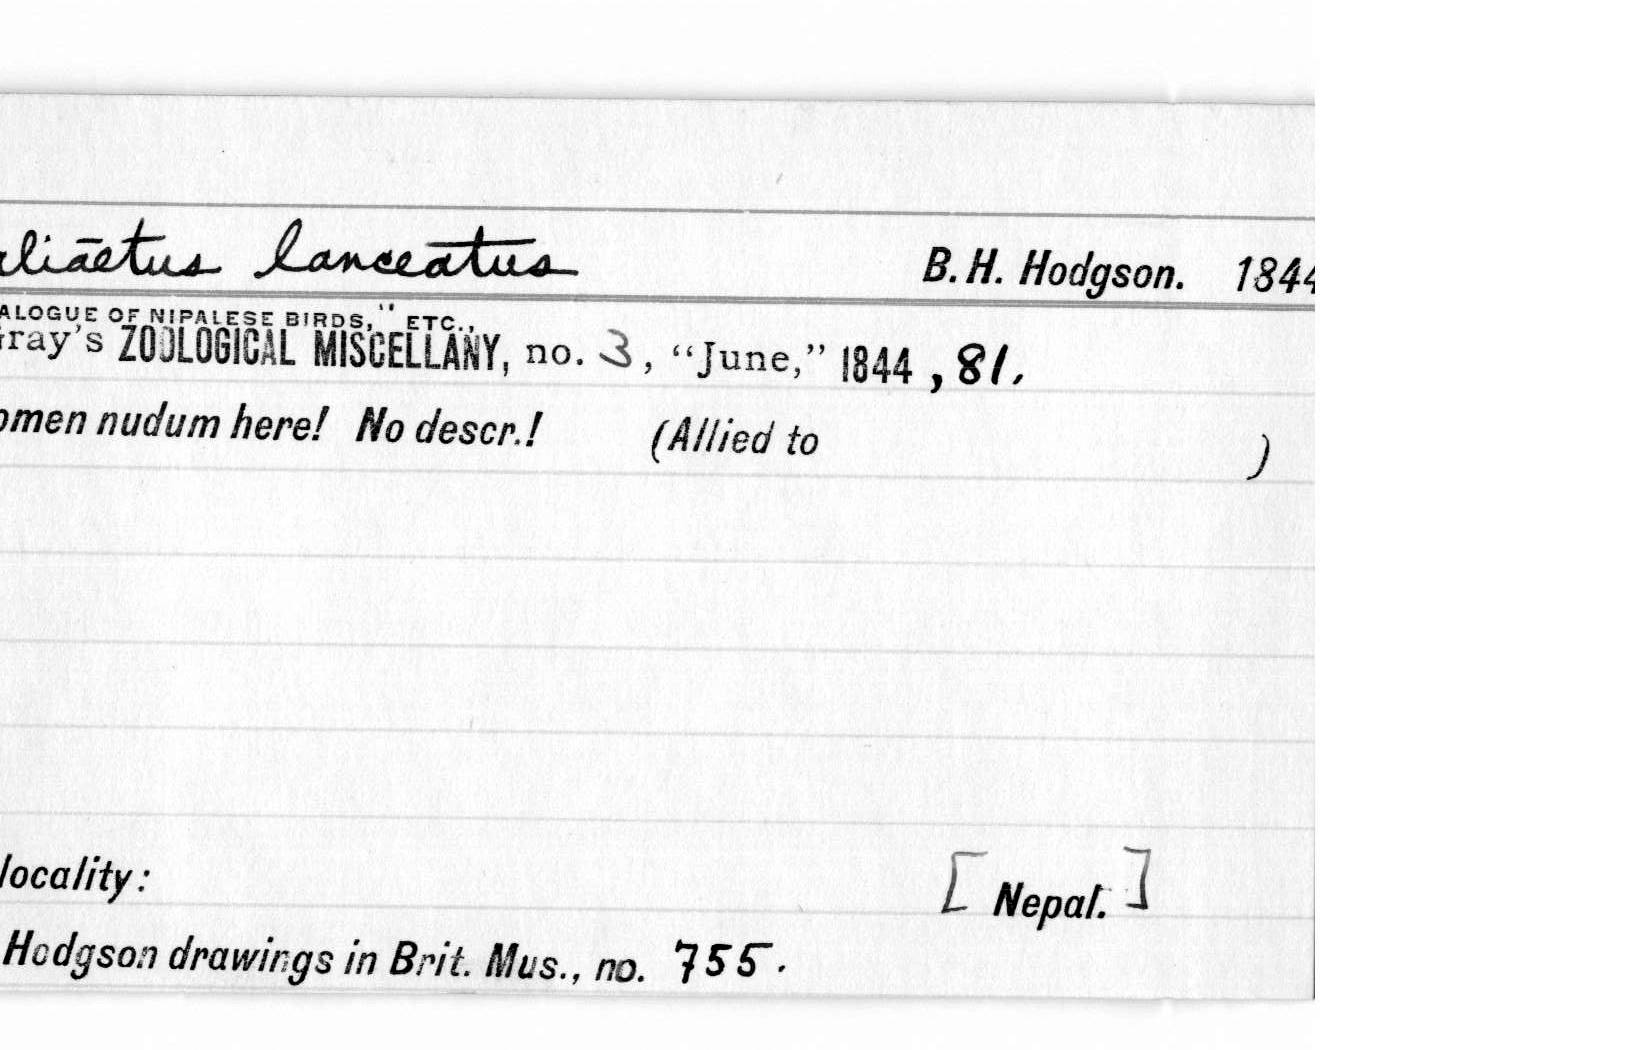 aliāetus lanceatus B.H. Hodgson. 1844
ALOGUE OF NIPALESE BIRDS," ETC.,
Gray's ZOOLOGICAL MISCELLANY, no. 3, "June," 1844, 81.
omen nudum here! No descr.! (Allied to )
locality: [Nepal.]
Hodgson drawings in Brit. Mus., no. 755.